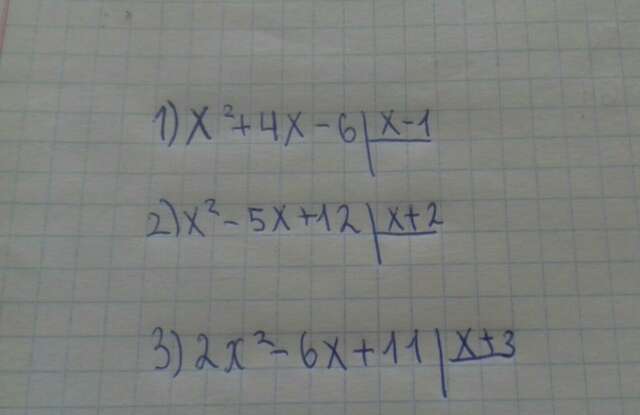 1) x² + 4x - 6 | x - 1
2) x² - 5x + 12 | x + 2
3) 2x² - 6x + 11 | x + 3